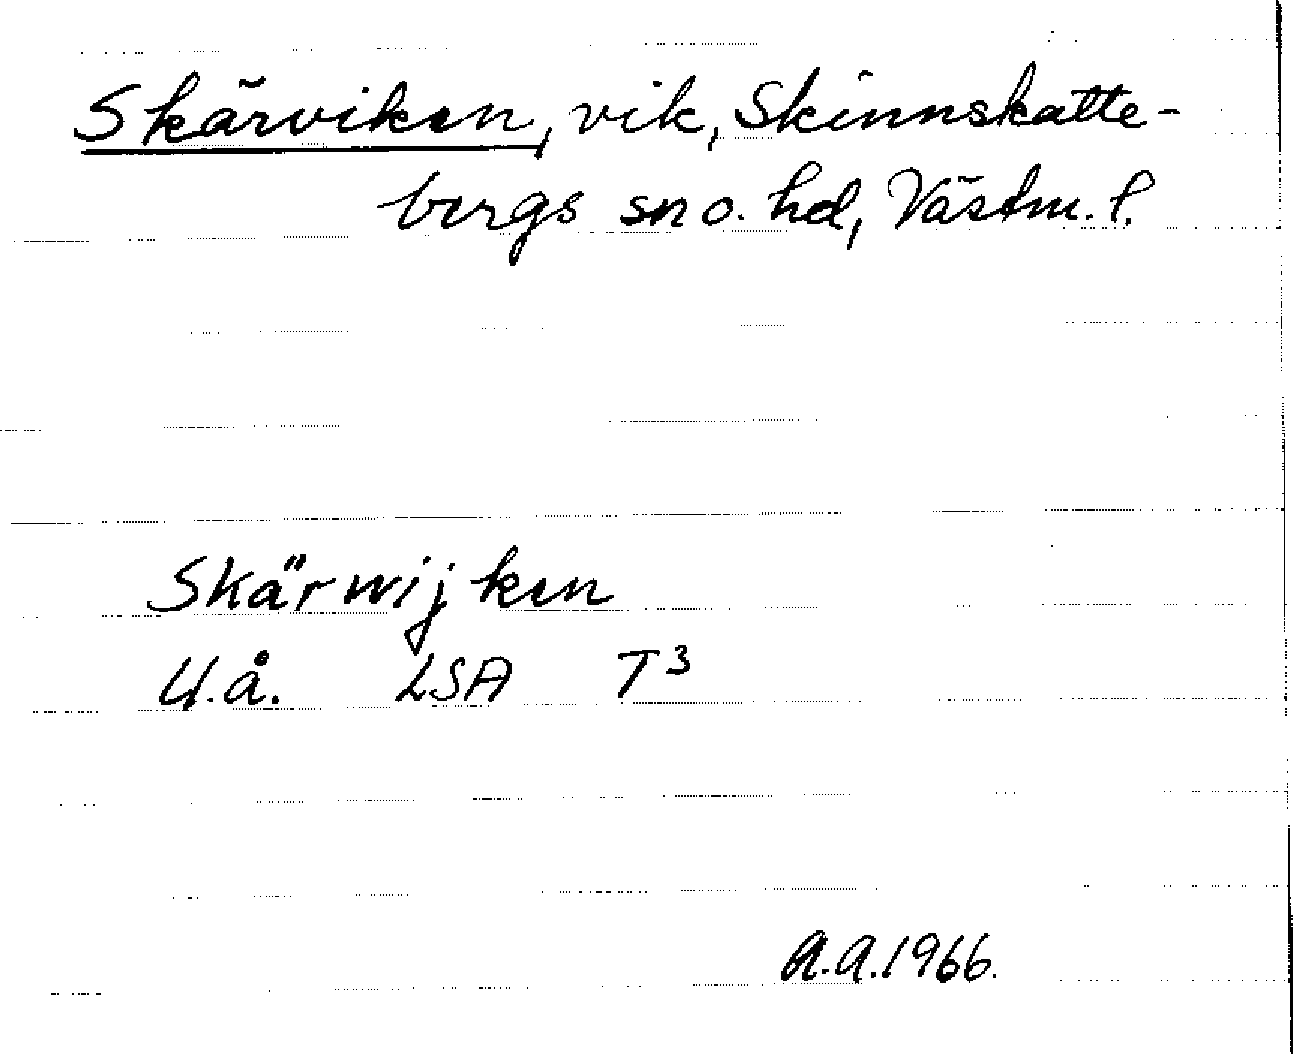 Skärviken, vik, Skinnskatte-
bergs sn o. hd, Västm. l.
Skärwijken
U.å. LSA T3
A.A.1966.